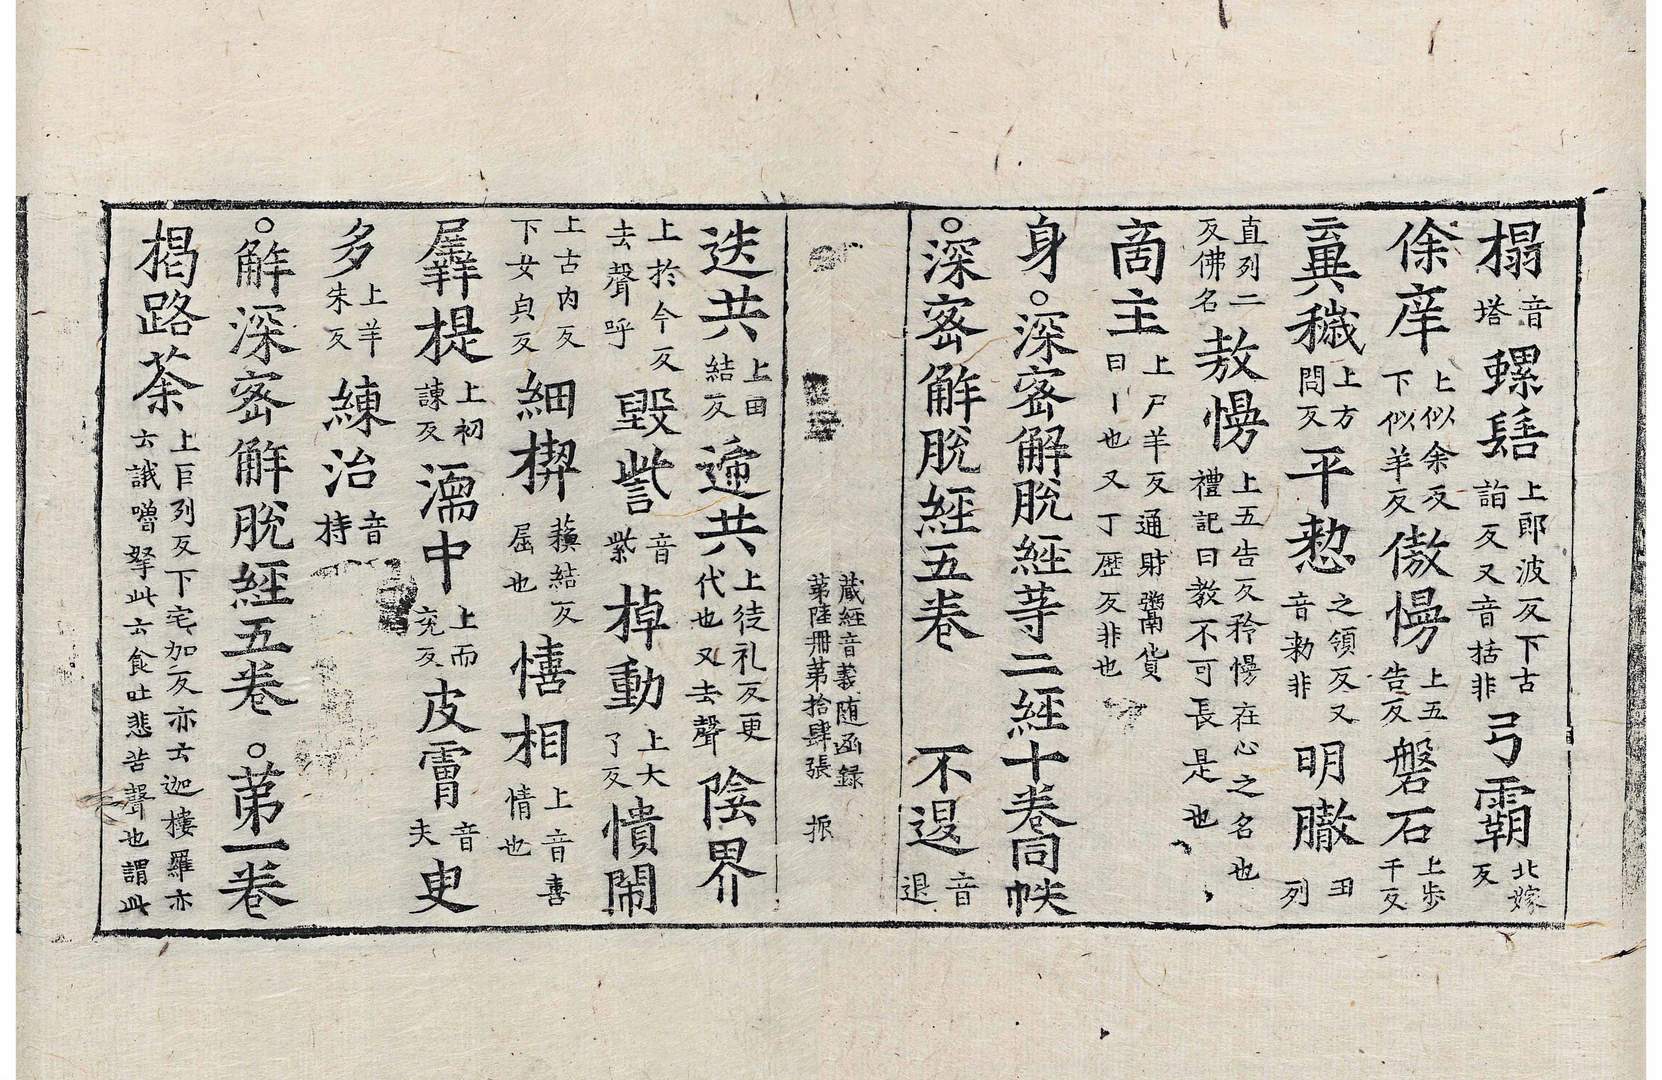 榻音塔螺髻上郎波反下古詣反又音括非弓霸北嫁反
俆庠上似余反下似羊反慠慢上五告反磐石上步千反
云冀穢上方問反平懃之領反又音勑非明瞮丑列
直列二反佛名敖慢上五告反矜慢在心之名也禮記曰教不可長是也
啇主上尸羊反通財鬻貨曰丨也又丁歷反非也
身○深宻解脫經等二經十卷同帙
○深宻解脫經五卷 不退音退
藏經音義随函録第陸冊第拾肆張 振
迭共上田結反遞共上徒礼反更代也又去聲陰界
上扵今反去聲呼毀訾音紫掉動上大了反憒鬧
上古內反下女貞反細楔蘓結反屈也憘相上音喜情也
羼提上初諌反濡中上而兖反皮霄音夫臾
多上羊朱反練治音持
○解深宻解脫經五卷 ○苐一卷
朅路荼上巨列反下宅加反亦云迦樓羅亦云誐嚕拏此云食吐悲苦聲也謂此